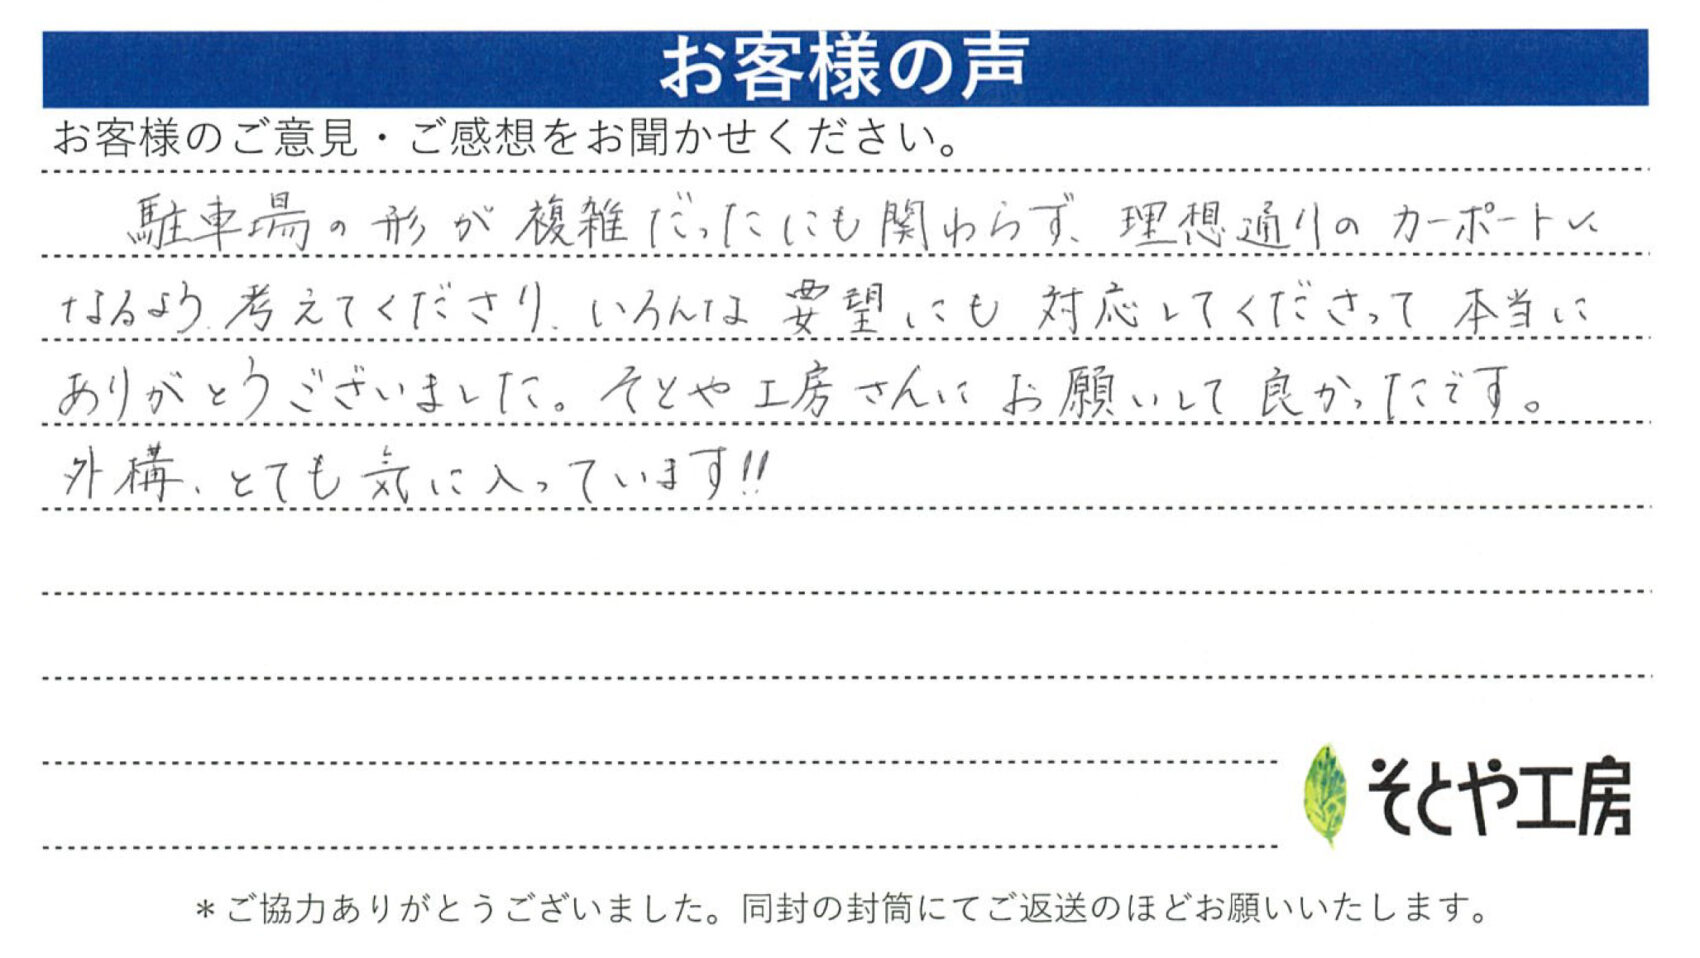 お客様の声
お客様のご意見・ご感想をお聞かせください。
駐車場の形が複雑だったにも関わらず、理想通りのカーポートに
なるよう、考えてくださり、いろんな要望にも対応してくださって本当に
ありがとうございました。そとや工房さんにお願いして良かったです。
外構、とても気に入っています!!
そとや工房
＊ご協力ありがとうございました。同封の封筒にてご返送のほどお願いいたします。